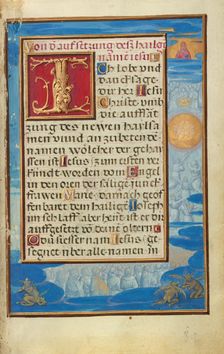 Von d' aufsetzung deß heilig
namē iesu
Ich lobe vnd
danck sage
dir her Jesu
Christe vmb
die auffsat
zung des newen hailsa
men vnnd an zubetenden
namen wölcher der gehai
ssen ist Jesus zum ersten er
funden worden vom Engel
in den oren der säligē junckf
rawen Marie. darnach geoff
enbaret dem hailigē Joseph
im schlaff aber hent ist er dir
auffgesetzt vō deinē eltern
O du süesser nam Jesus ge
segnet v̄ber alle namen in